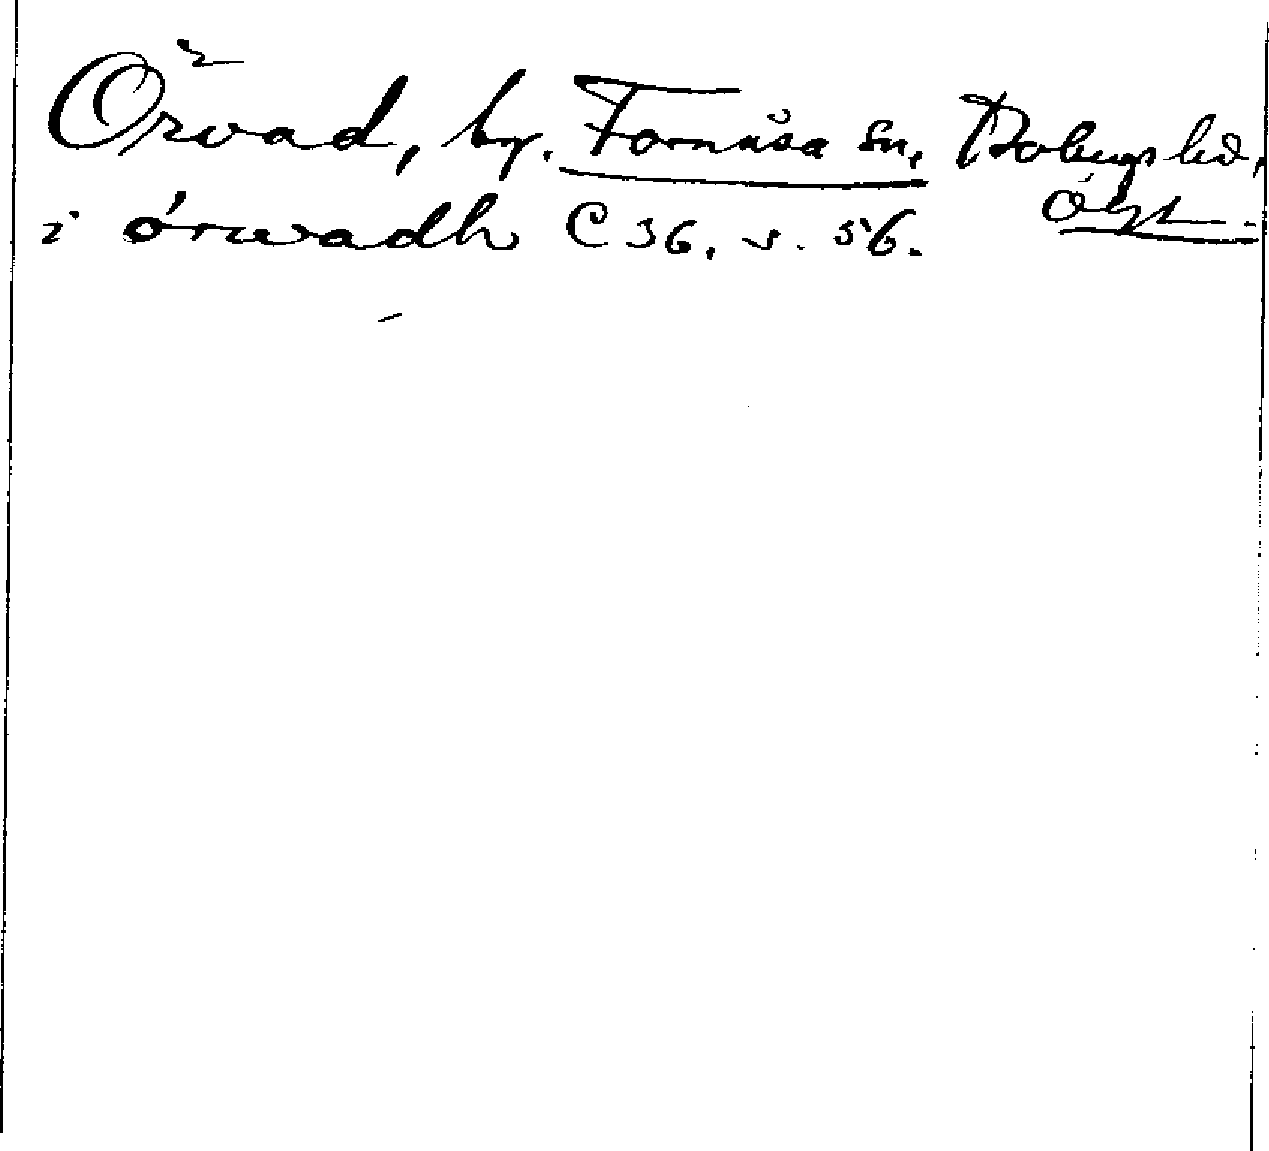 Örvad, by. Fornåsa sn, Bobergs hd,
Ögt.
i örwadh C 36, s. 56.